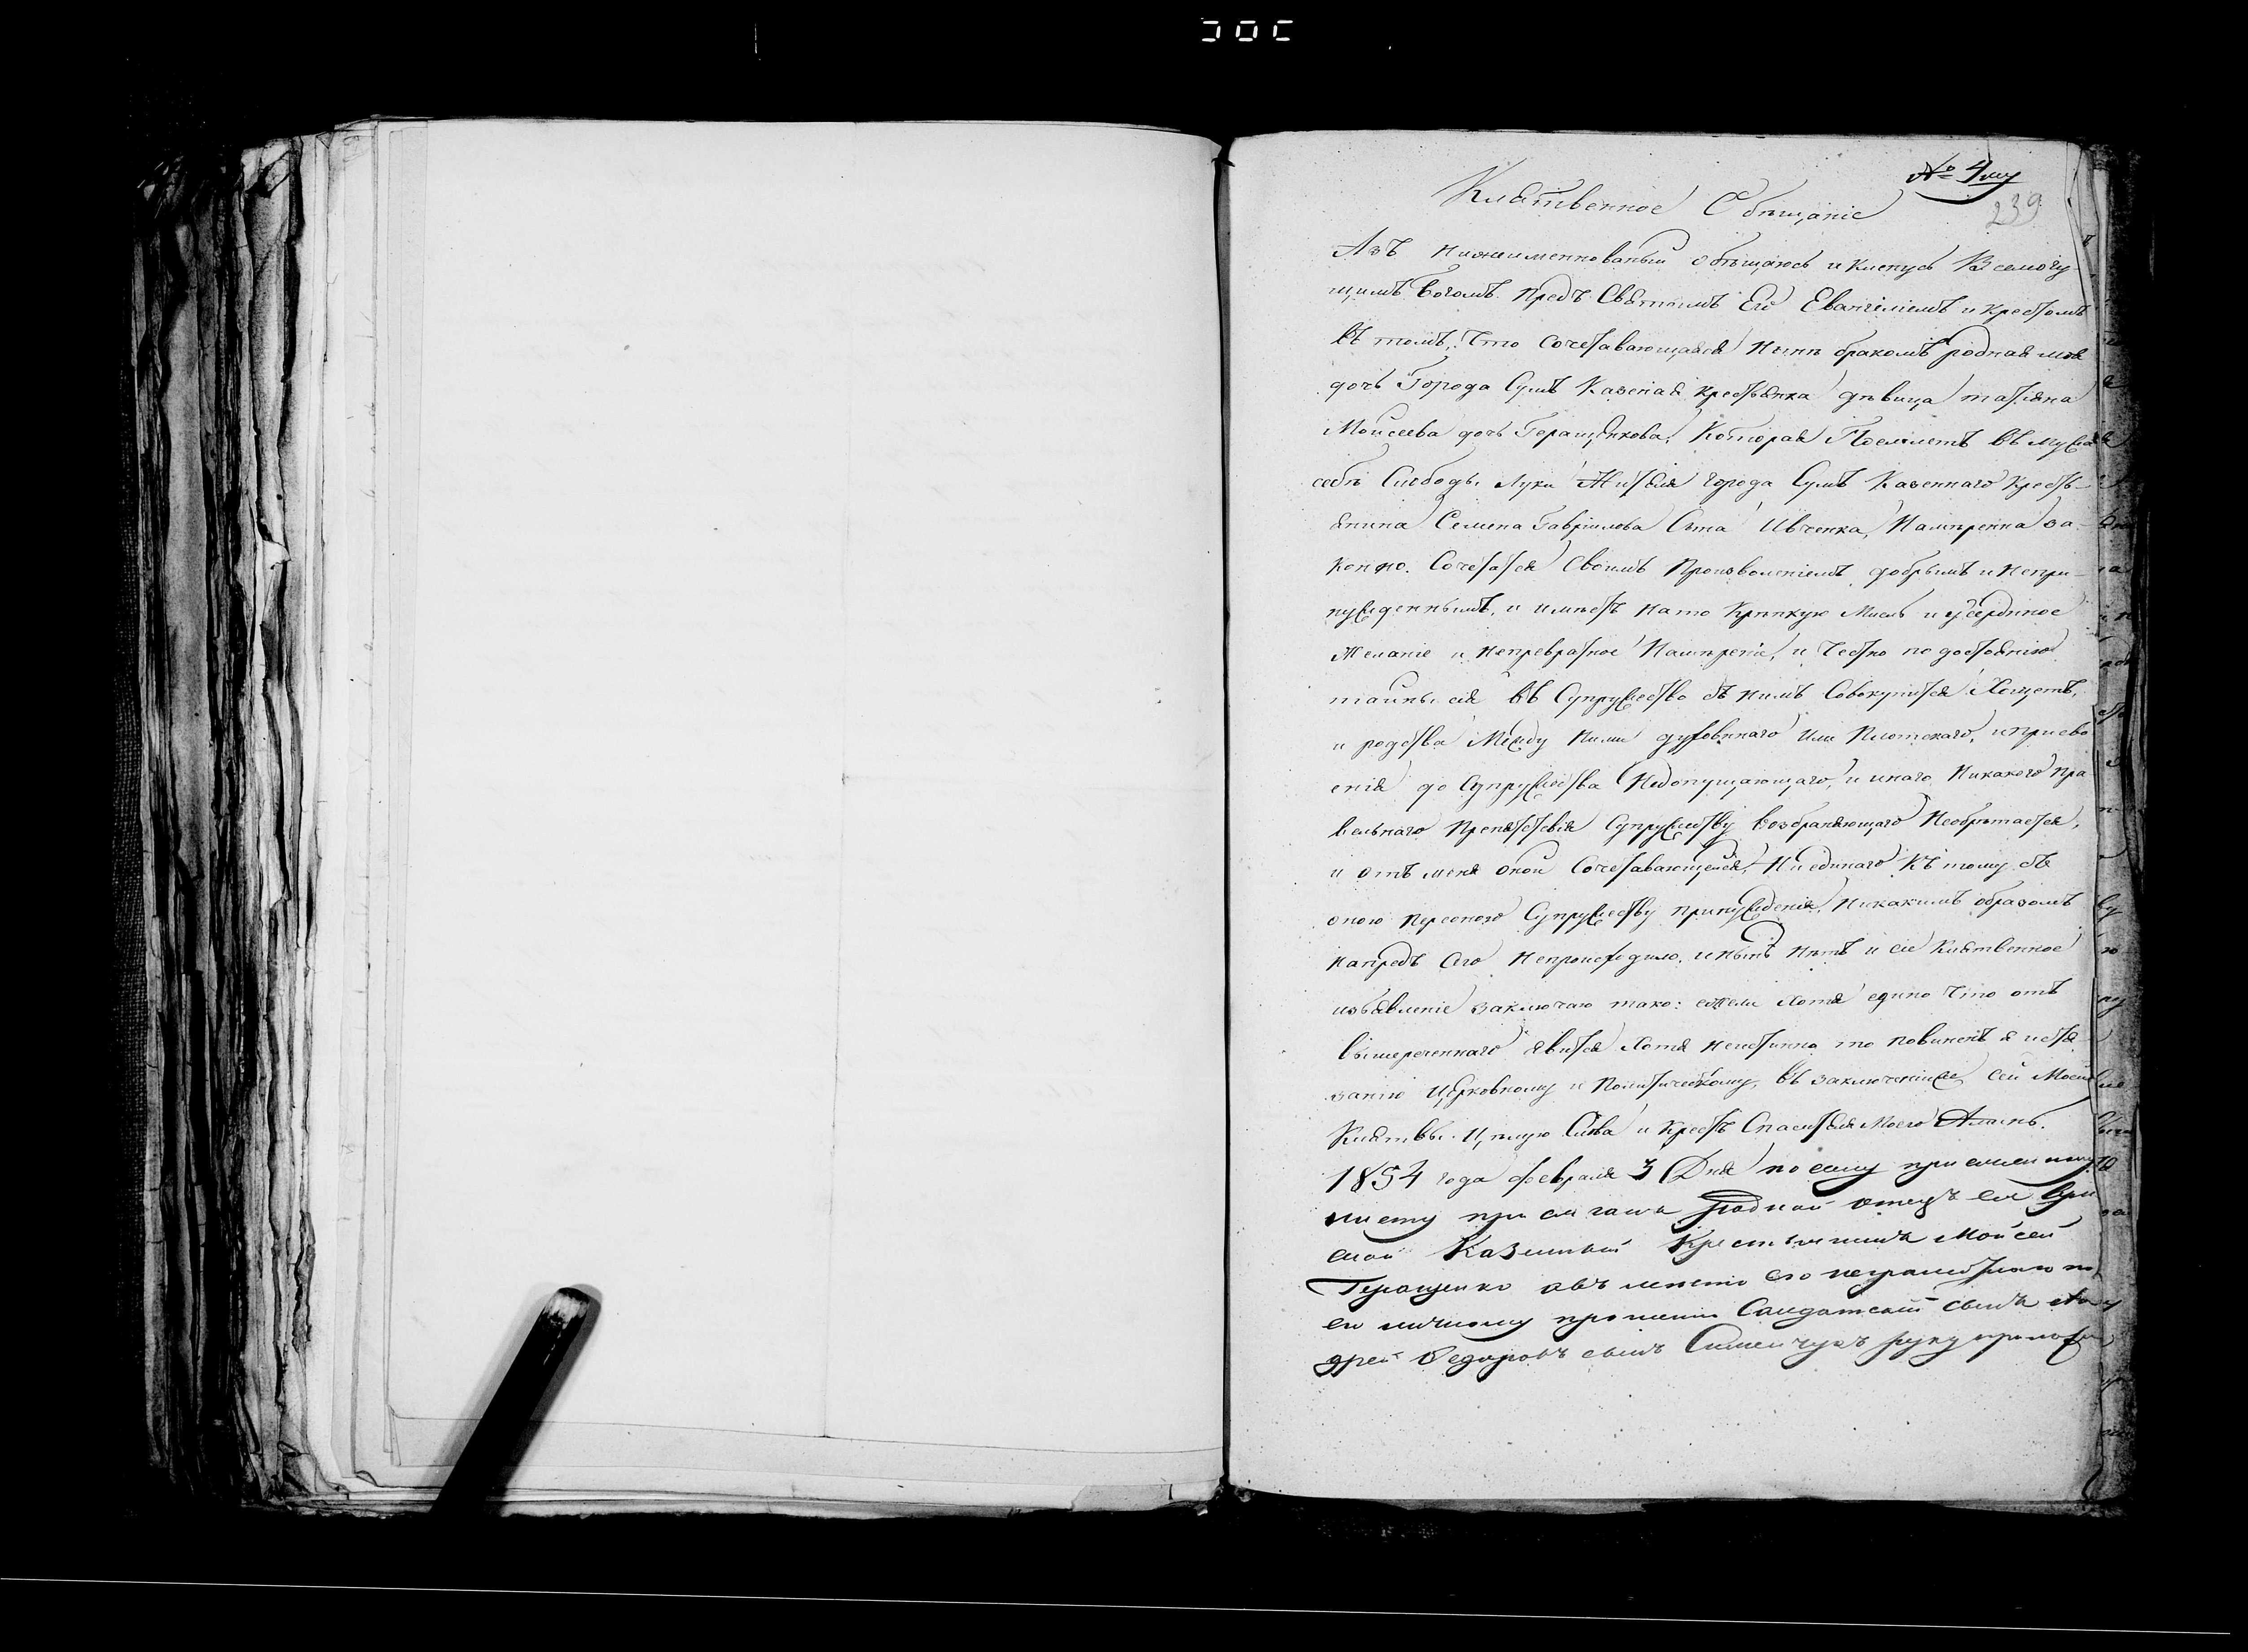 № 4му
239
Клятвенное Обѣщаніе
Азъ нижеименнованый обѣщаюсь и кленусь Всемогу-
щимъ Богомъ. Предъ Святымъ Его Евангеліемъ и крестомъ
въ томъ, что сочетавающаяся нынѣ бракомъ родная моя
дочь Города Сумъ Казеная крестьянка дѣвица татіяна
Моисеева дочь Геращѣнкова, Которая Поемлетъ въ мужа
себѣ Слободы Луки Жителя города Сумъ Казеннаго Кресть-
янина Семена Гавріилова Сына Ивченка, Намѣренна за-
конно. Сочетатся Своимъ Произволеніемъ добрымъ и Непри-
нужденнымъ, и имѣетъ на то Крѣпкую Мысль и усердное
Желаніе и Непревратное Намѣреніе, и Честно по достоянію
тайны сія въ Супружество съ нимъ Совокупится Хощетъ,
и родства Между Ними духовнаго Или Плотскаго, и присво
енія до Супружества Недопущающаго, и инаго Никакого пра
вельнаго Препятствія Супружеству возбраняющаго Необрѣтается,
и отъ меня оной Сочетавающейся, Ни единаго Къ тому съ
оною персоною Супружеству принужденія, Никакимъ образомъ
напредъ Сего Непроисходило, и нынѣ Нѣтъ и сіе Клятвенное
изъявленіе заключаю тако: ежели Хотя едино Что отъ
вышереченнаго явится Хотя неистинно то повиненъ я истя-
занію Церковному и Политическому, въ заключеніиже сей Моей
Клятвы. Цѣлую Слова и Крестъ Спасителя Моего Аминь.
1854 года февраля 3 Дня по сему присяжному
листу присягалъ родной отецъ ея Сум
ской Казенный Крестьянинъ Мойсей
Геращенко а вмѣсто его неграмотнаго по
его личному прошенію Салдатскій сынъ Ан
дрей Федоровъ сынъ руку приложил